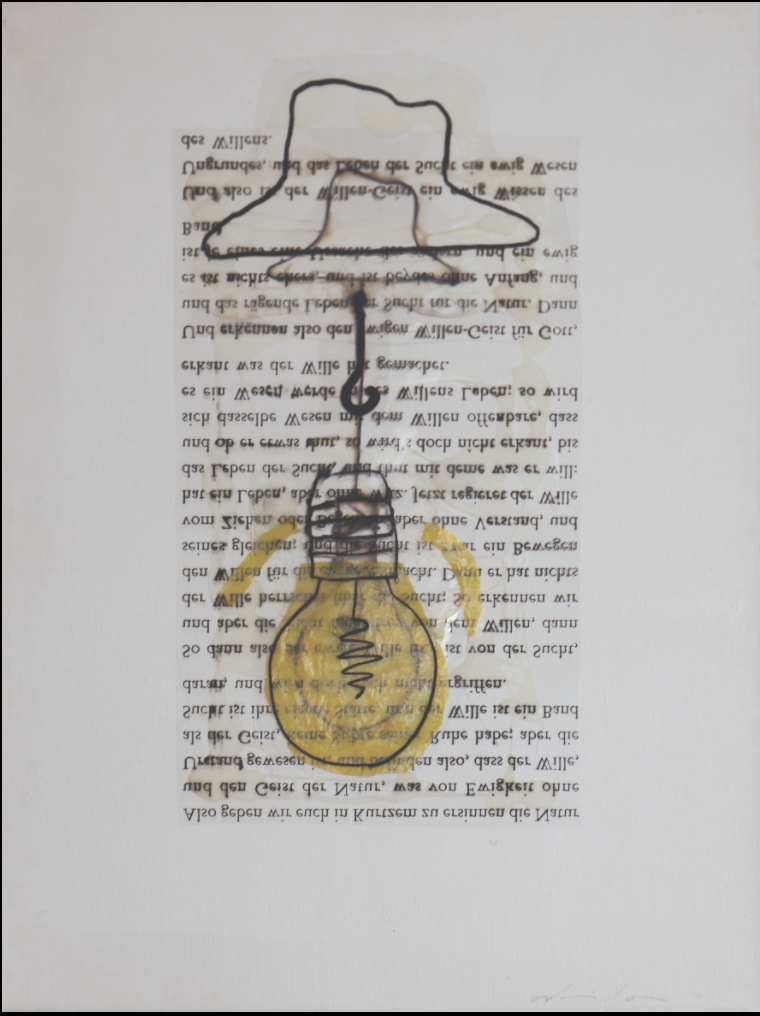 Also geben wir euch in Kurtzem zu ersinnen die Natur
und den Geist der Natur, was von Ewigkeit ohne
Urstand gewesen ist, und befinden also, dass der Wille,
als der Geist, keine Stätte seiner Ruhe habe; aber die
Sucht ist ihre eigene Stätte, und der Wille ist ein Band
daran, und wird doch nicht ergriffen.
So dann also der ewige Wille frey ist von der Sucht,
und aber die Sucht nicht frey von dem Willen, dann
der Wille herrschet über die Sucht; So erkennen wir
den Willen für die Macht. Dann er hat nichts
seines gleichen; und die Sucht ist zwar ein Bewegen
vom Ziehen oder Begehren, aber ohne Verstand, und
hat ein Leben, aber ohne Witz. Jetzt regieret der Wille
das Leben der Sucht, und thut mit deme was er will:
und ob er etwas thut, so wird's doch nicht erkant, bis
sich dasselbe Wesen mit dem Willen offenbare, dass
es ein Wesen werde in des Willens Leben; so wird
erkant was der Wille hat gemachet.
Und erkennen also den ewigen Willen-Geist für Gott,
und das rägende Leben der Sucht für die Natur. Dann
es ist nichts ehers, und ist beydes ohne Anfang, und
ist je eines eine Ursache des andern, und ein ewig
Band.
Und also ist der Willen-Geist ein ewig Wissen des
Ungrundes, und das Leben der Sucht ein ewig Wesen
des Willens.